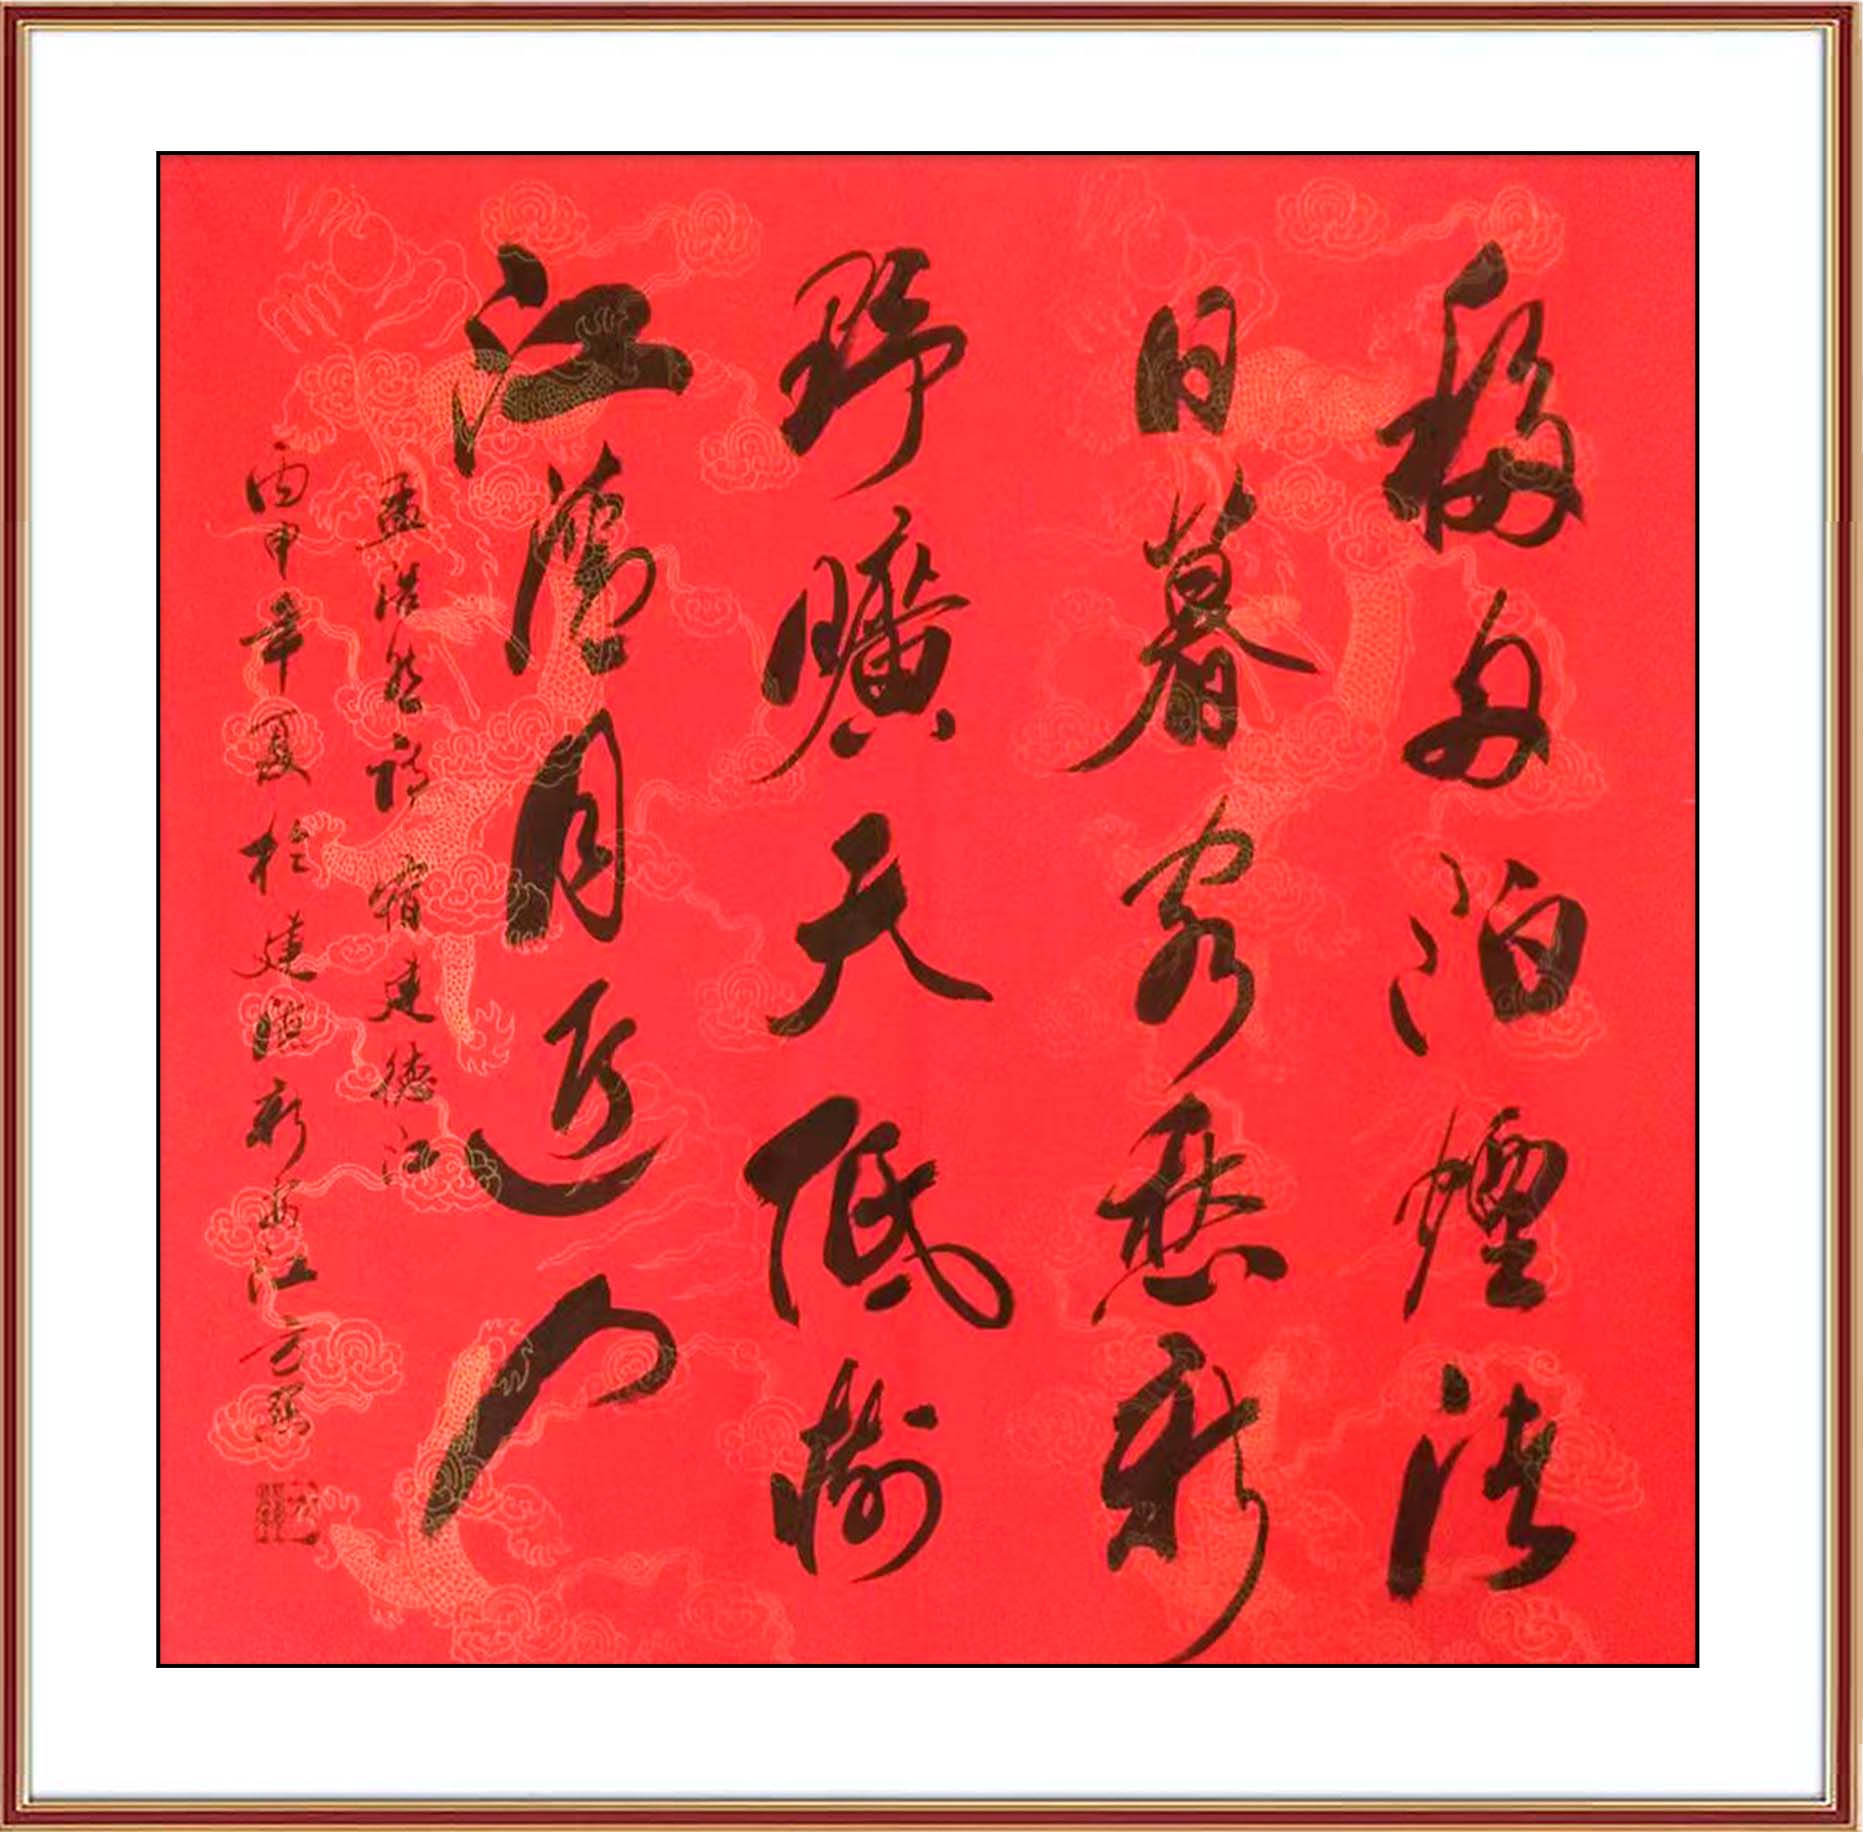 移舟泊煙渚
日暮客愁新
野曠天低樹
江清月近人
孟浩然詩宿建德江
丙申年夏於建德新安江